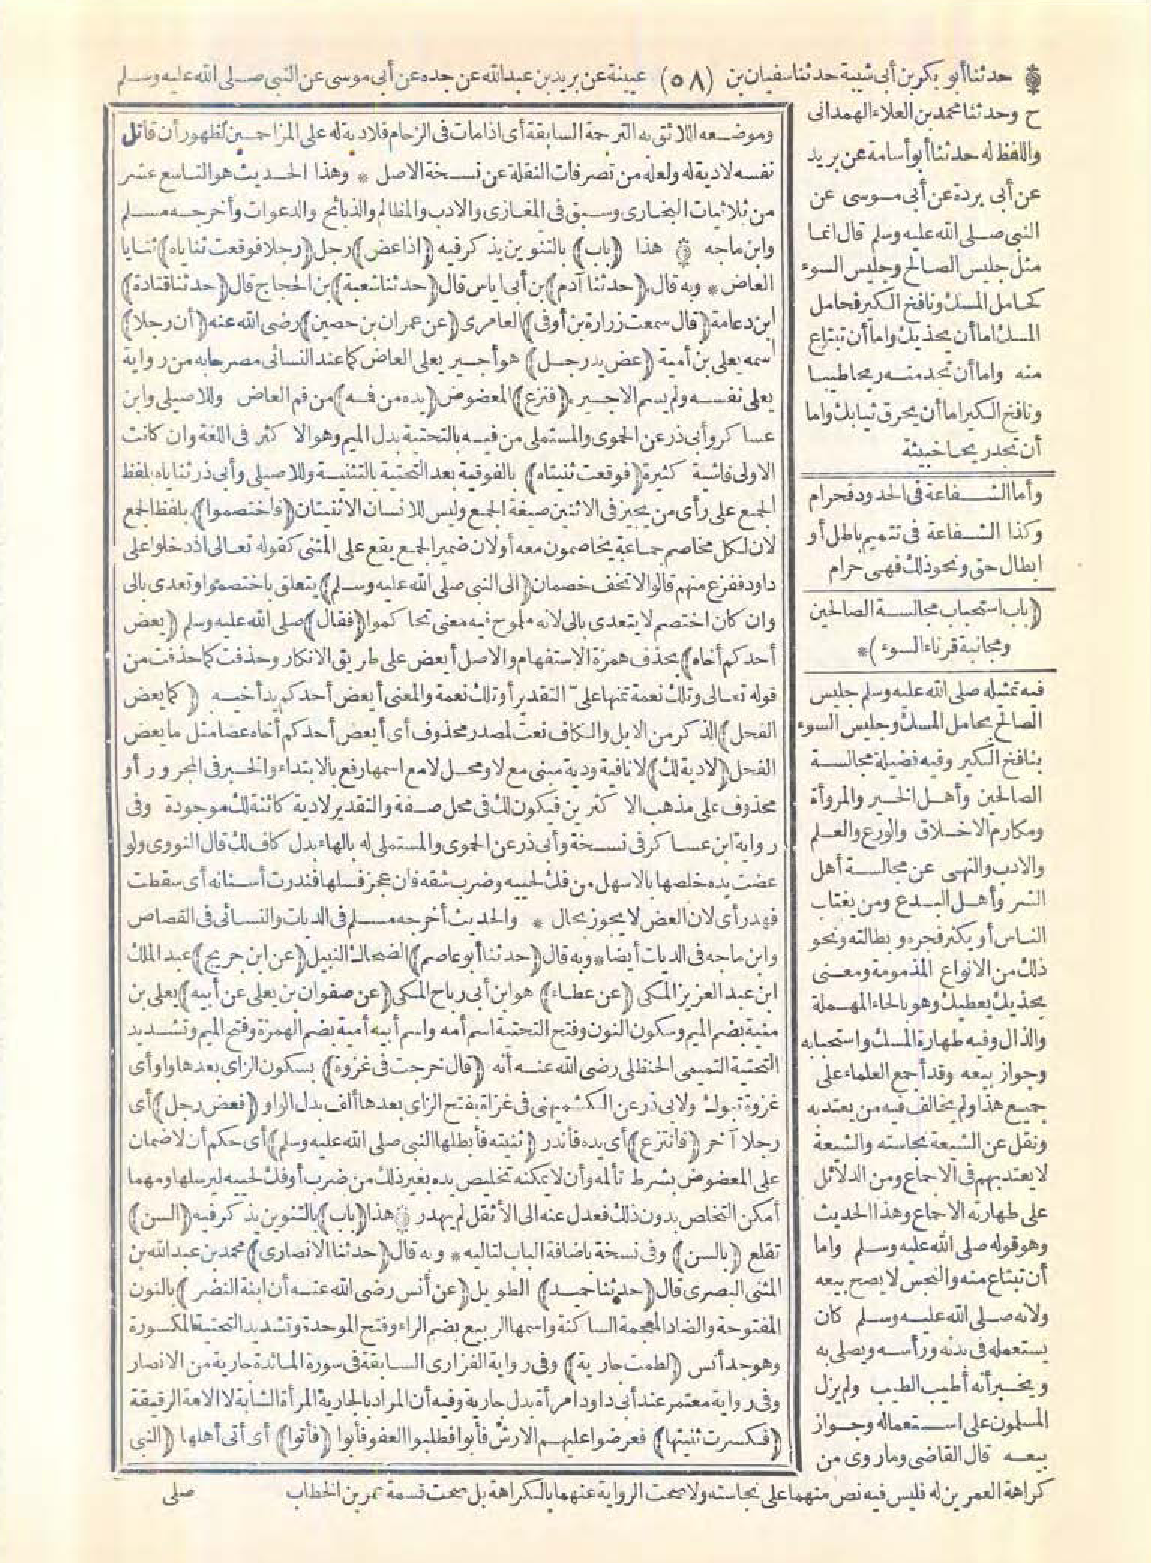 حدثنا أبو بكر بن أبي شيبة حدثنا سفيان بن (٥٨) عيينة عن بريد بن عبد الله عن جده عن أبي موسى عن النبي صلى الله عليه وسلم
ح وحدثنا محمد بن العلاء الهمداني
واللفظ له حدثنا أبو أسامة عن بريد
عن أبي بردة عن أبي موسى عن
النبي صلى الله عليه وسلم قال انما
مثل جليس الصالح وجليس السوء
كحامل المسك ونافخ الكير فحامل
المسك اما أن يحذيك واما أن تبتاع
منه واما أن تجد منه ريحا طيبا
ونافخ الكير اما أن يحرق ثيابك واما
أن تجد ريحا خبيثة
وأما الشفاعة في الحدود فحرام
وكذا الشفاعة في تتميم باطل أو
ابطال حق ونحو ذلك فهي حرام
(باب استحباب مجالسة الصالحين
ومجانبة قرناء السوء)*
فيه تمثيله صلى الله عليه وسلم جليس
الصالح بحامل المسك وجليس السوء
بنافخ الكير وفيه فضيلة مجالسة
الصالحين وأهل الخير والمروأة
ومكارم الاخلاق والورع والعلم
والادب والنهى عن مجالسة أهل
الشر وأهل البدع ومن يغتاب
الناس أو يكثر فجره وبطالته ونحو
ذلك من الانواع المذمومة ومعنى
يحذيك يعطيك وهو بالحاء المهملة
والذال وفيه طهارة المسك واستحبابه
وجواز بيعه وقد أجمع العلماء على
جميع هذا ولم يخالف فيه من يعتد به
ونقل عن الشيعة نجاسته والشيعة
لا يعتد بهم في الاجماع ومن الدلائل
على طهارته الاجماع وهذا الحديث
وهو قوله صلى الله عليه وسلم واما
أن تبتاع منه والنجس لا يصح بيعه
ولانه صلى الله عليه وسلم كان
يستعمله في بدنه ورأسه ويصلى به
ويخبر أنه أطيب الطيب ولم يزل
المسلمون على استعماله وجواز
بيعه قال القاضي وما روى من
كراهة العمرين له فليس فيه نص منهما على نجاسته ولا صحت الرواية عنهما بالكراهة بل صحت قسمة عمر بن الخطاب
وموضعه اللائق به الترجمة السابقة أي اذا مات في الزحام فلا دية له على المزاحمين لظهور أن قاتل
نفسه لا دية له ولعله من تصرفات النقلة عن نسخة الاصل * وهذا الحديث هو التاسع عشر
من ثلاثيات البخاري وسبق في المغازي والادب والمظالم والذبائح والدعوات وأخرجه مسلم
وابن ماجه هذا (باب) بالتنوين يذكر فيه (اذا عض) رجل (رجلا فوقعت ثناياه) ثنايا
العاض * وبه قال (حدثنا آدم) بن أبي اياس قال (حدثنا شعبة) بن الحجاج قال (حدثنا قتادة)
ابن دعامة (قال سمعت زرارة بن أوفى) العامري (عن عمران بن حصين) رضي الله عنه (أن رجلا)
اسمه يعلى بن أمية (عض يد رجل) هو أجير يعلى العاض كما عند النسائي مصرحا به من رواية
يعلى نفسه ولم يسم الاجير (فنزع) المعضوض (يده من فمه) من فم العاض وللاصيلي وابن
عساكر وأبي ذر عن الحموي والمستملي من فيه بالتحتية بدل الميم وهو الاكثر في اللغة وان كانت
الاولى فاشية كثيرة (فوقعت ثنيتاه) بالفوقية بعد التحتية بالتثنية وللاصيلي وأبي ذر ثناياه بلفظ
الجمع على رأى من يجيز في الاثنين صيغة الجمع وليس للانسان الا ثنيتان (فاختصموا) بلفظ الجمع
لان لكل مخاصم جماعة يخاصمون معه أو لان ضمير الجمع يقع على المثنى كقوله تعالى اذ دخلوا على
داود ففزع منهم قالوا لا تخف خصمان (الى النبي صلى الله عليه وسلم) يتعلق باختصموا وتعدى بالى
وان كان اختصم لا يتعدى بالى لانه ملوح فيه معنى تحاكموا (فقال) صلى الله عليه وسلم (يعض
أحدكم أخاه) بحذف همزة الاستفهام والاصل أيعض على طريق الانكار وحذفت كما حذفت من
قوله تعالى وتلك نعمة تمنها علي التقدير أو تلك نعمة والمعنى أيعض أحدكم يد أخيه (كما يعض
الفحل) الذكر من الابل والكاف نعت لمصدر محذوف أي أيعض أحدكم أخاه عضا مثل ما يعض
الفحل (لا دية لك) لا نافية ودية مبنى مع لا ومحل لا مع اسمها رفع بالابتداء والخبر في المجرور أو
محذوف على مذهب الاكثرين فيكون لك في محل صفة والتقدير لا دية كائنة لك موجودة وفي
رواية ابن عساكر في نسخة وأبي ذر عن الحموي والمستملي له بالهاء بدل كاف لك قال النووي ولو
عضت يده خلصها بالاسهل من فك لحييه وضرب شدقه فان عجز فسلها فندرت أسنانه أي سقطت
فهدر أي لان العض لا يجوز بحال * والحديث أخرجه مسلم في الديات والنسائي في القصاص
وابن ماجه في الديات أيضا * وبه قال (حدثنا أبو عاصم) الضحاك النبيل (عن ابن جريج) عبد الملك
ابن عبد العزيز المكي (عن عطاء) هو ابن أبي رباح المكي (عن صفوان بن يعلى عن أبيه) يعلى بن
منية بضم الميم وسكون النون وفتح التحتية اسم أمه واسم أبيه أمية بضم الهمزة وفتح الميم وتشديد
التحتية التميمي الحنظلي رضي الله عنه أنه (قال خرجت في غزوة) بسكون الزاى بعدها واو أي
غزوة تبوك ولابي ذر عن الكشميهني في غزاة بفتح الزاى بعدها ألف بدل الواو (فعض رجل) أي
رجلا آخر (فانتزع) أي يده فأندر (ثنيته فأبطلها النبي صلى الله عليه وسلم) أي حكم أن لا ضمان
على المعضوض بشرط تألمه وأن لا يمكنه تخليص يده بغير ذلك من ضرب أو فك لحييه ليرسلها ومهما
أمكن التخلص بدون ذلك فعدل عنه الى الأثقل لم يهدر هذا (باب) بالتنوين يذكر فيه (السن)
تقلع (بالسن) وفي نسخة باضافة الباب لتاليه * وبه قال (حدثنا الانصاري) محمد بن عبد الله بن
المثنى البصري قال (حدثنا حميد) الطويل (عن أنس رضي الله عنه أن ابنة النضر) بالنون
المفتوحة والضاد المعجمة الساكنة واسمها الربيع بضم الراء وفتح الموحدة وتشديد التحتية المكسورة
وهو جد أنس (لطمت جارية) وفي رواية الفزاري السابقة في سورة المائدة جارية من الانصار
وفي رواية معتمر عند أبي داود امرأة بدل جارية وفيه أن المراد بالجارية المرأة الشابة لا الامة الرقيقة
(فكسرت ثنيتها) فعرضوا عليهم الارش فأبوا فطلبوا العفو فأبوا (فأتوا) أي أتى أهلها (النبي
صلى